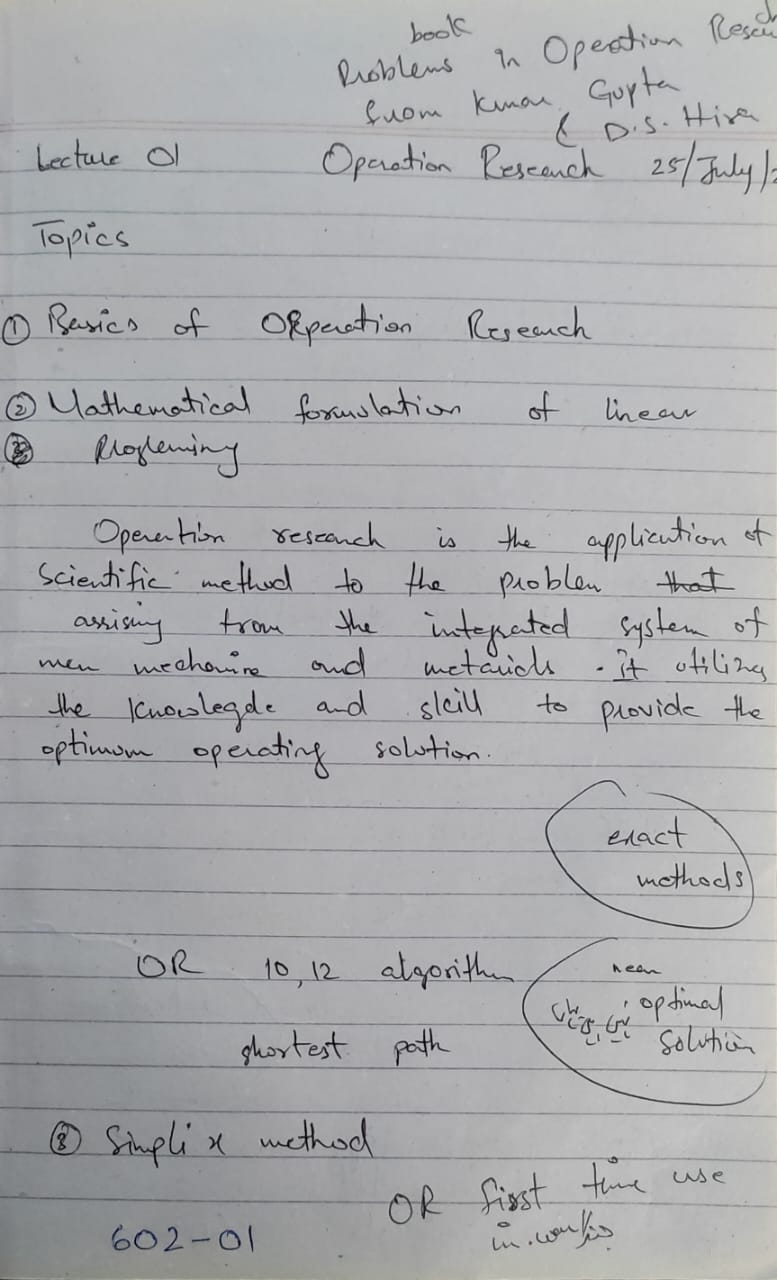 book
Problems in Operation Resea
from Kumar Gupta
& D.S. Hira
Lecture 01 Operation Research 25/July/2
Topics
① Basics of ORperation Research
② Mathematical formulation of linear
Progleming
Operation research is the application of
Scientific method to the problem that
assising from the integrated system of
men mechanire and metarials . it utilizes
the Knowlegde and skill to provide the
optimum operating solution.
exact
methods
OR 10,12 algorithm near
optimal
shortest path solution
③ Simpli x method
OR first time use
in
602-01